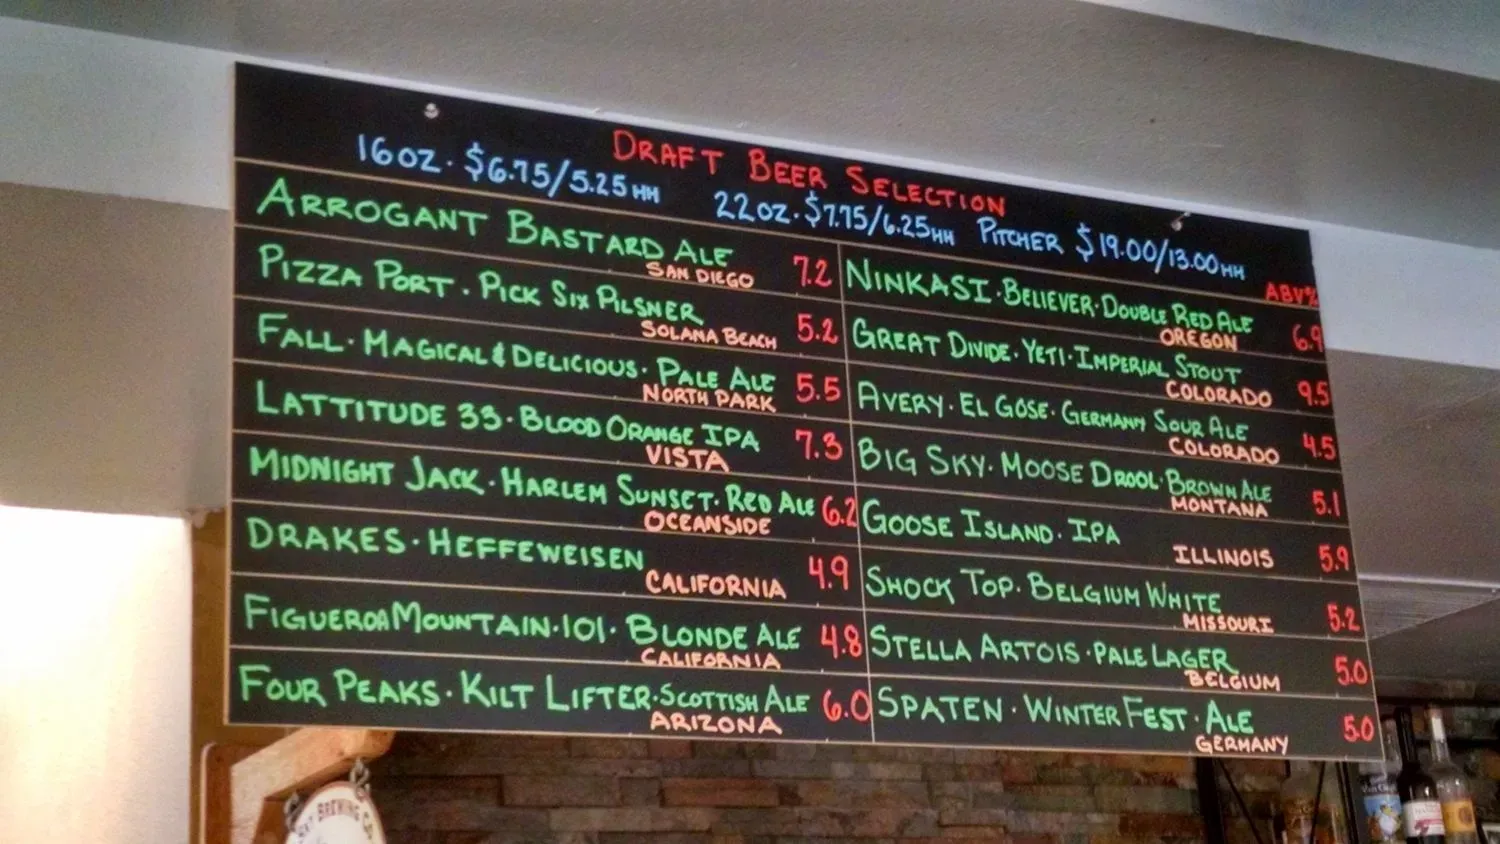 DRAFT BEER SELECTION
16OZ. $6.75/5.25HH 22OZ. $7.75/6.25HH PITCHER $19.00/13.00HH
ABV%
ARROGANT BASTARD ALE 7.2
SAN DIEGO
PIZZA PORT. PICK SIX PILSNER 5.2
SOLANA BEACH
FALL. MAGICAL & DELICIOUS. PALE ALE 5.5
NORTH PARK
LATTITUDE 33. BLOOD ORANGE IPA 7.3
VISTA
MIDNIGHT JACK. HARLEM SUNSET. RED ALE 6.2
OCEANSIDE
DRAKES. HEFFEWEISEN 4.9
CALIFORNIA
FIGUEROA MOUNTAIN. 101. BLONDE ALE 4.8
CALIFORNIA
FOUR PEAKS. KILT LIFTER. SCOTTISH ALE 6.0
ARIZONA
NINKASI. BELIEVER. DOUBLE RED ALE 6.9
OREGON
GREAT DIVIDE. YETI. IMPERIAL STOUT 9.5
COLORADO
AVERY. EL GOSE. GERMANY SOUR ALE 4.5
COLORADO
BIG SKY. MOOSE DROOL. BROWN ALE 5.1
MONTANA
GOOSE ISLAND. IPA 5.9
ILLINOIS
SHOCK TOP. BELGIUM WHITE 5.2
MISSOURI
STELLA ARTOIS. PALE LAGER 5.0
BELGIUM
SPATEN. WINTER FEST. ALE 5.0
GERMANY
BREWING CO